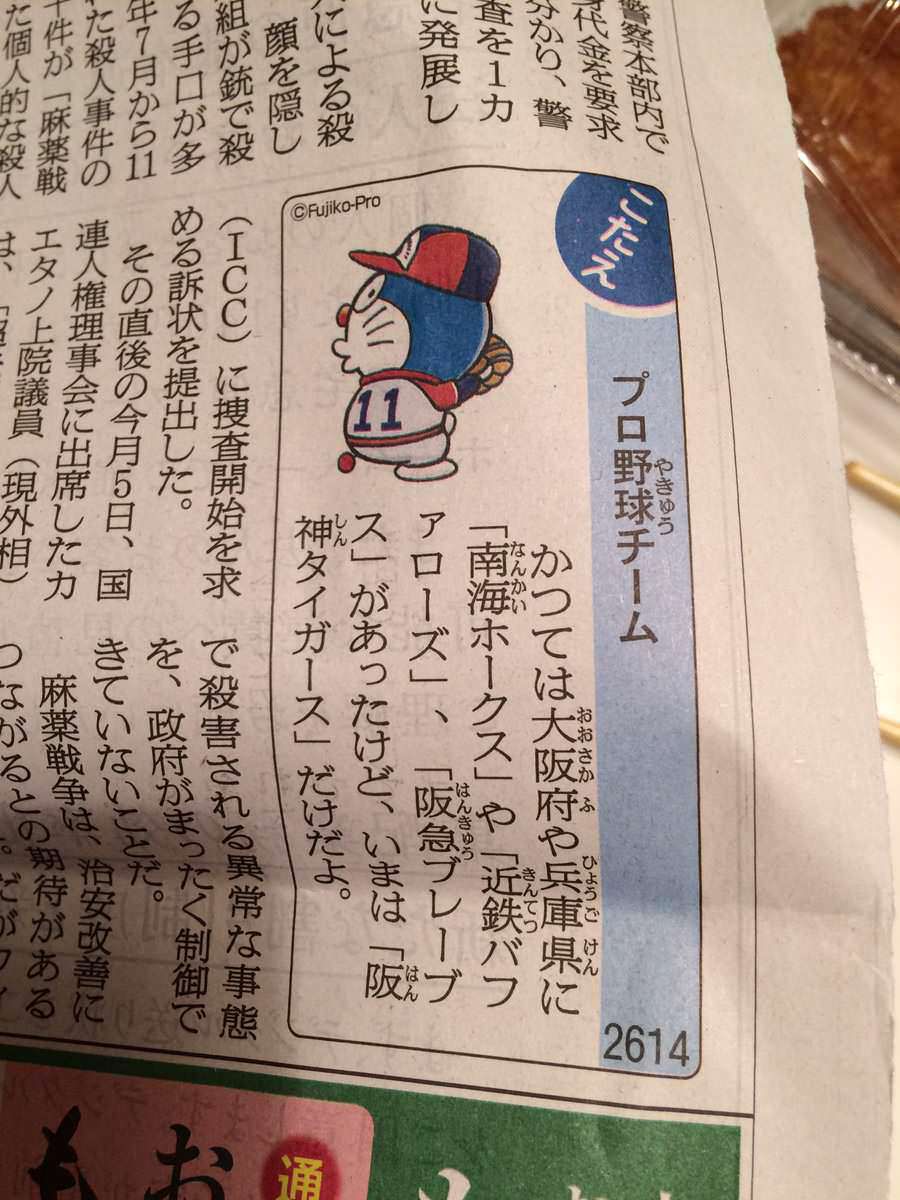 警察本部内で
身代金を要求
分かり、警
査を1カ
に発展し
による殺
顔を隠し
組が銃で殺
る手口が多
年7月から11
た殺人事件の
件が「麻薬戦
た個人的な殺人
こたえ
プロ野球チーム
やきゅう
2614
©Fujiko-Pro
11
かつては大阪府や兵庫県に
おおさかふ ひょうごけん
「南海ホークス」や「近鉄バフ
なんかい きんてつ
ァローズ」、「阪急ブレーブ
はんきゅう
ス」があったけど、いまは「阪
はん
神タイガース」だけだよ。
しん
（ICC）に捜査開始を求
める訴状を提出した。
その直後の今月5日、国
連人権理事会に出席したカ
エタノ上院議員（現外相）
は、「
で殺害される異常な事態
を、政府がまったく制御で
きていないことだ。
麻薬戦争は、治安改善に
つながるとの期待がある
通
お
も